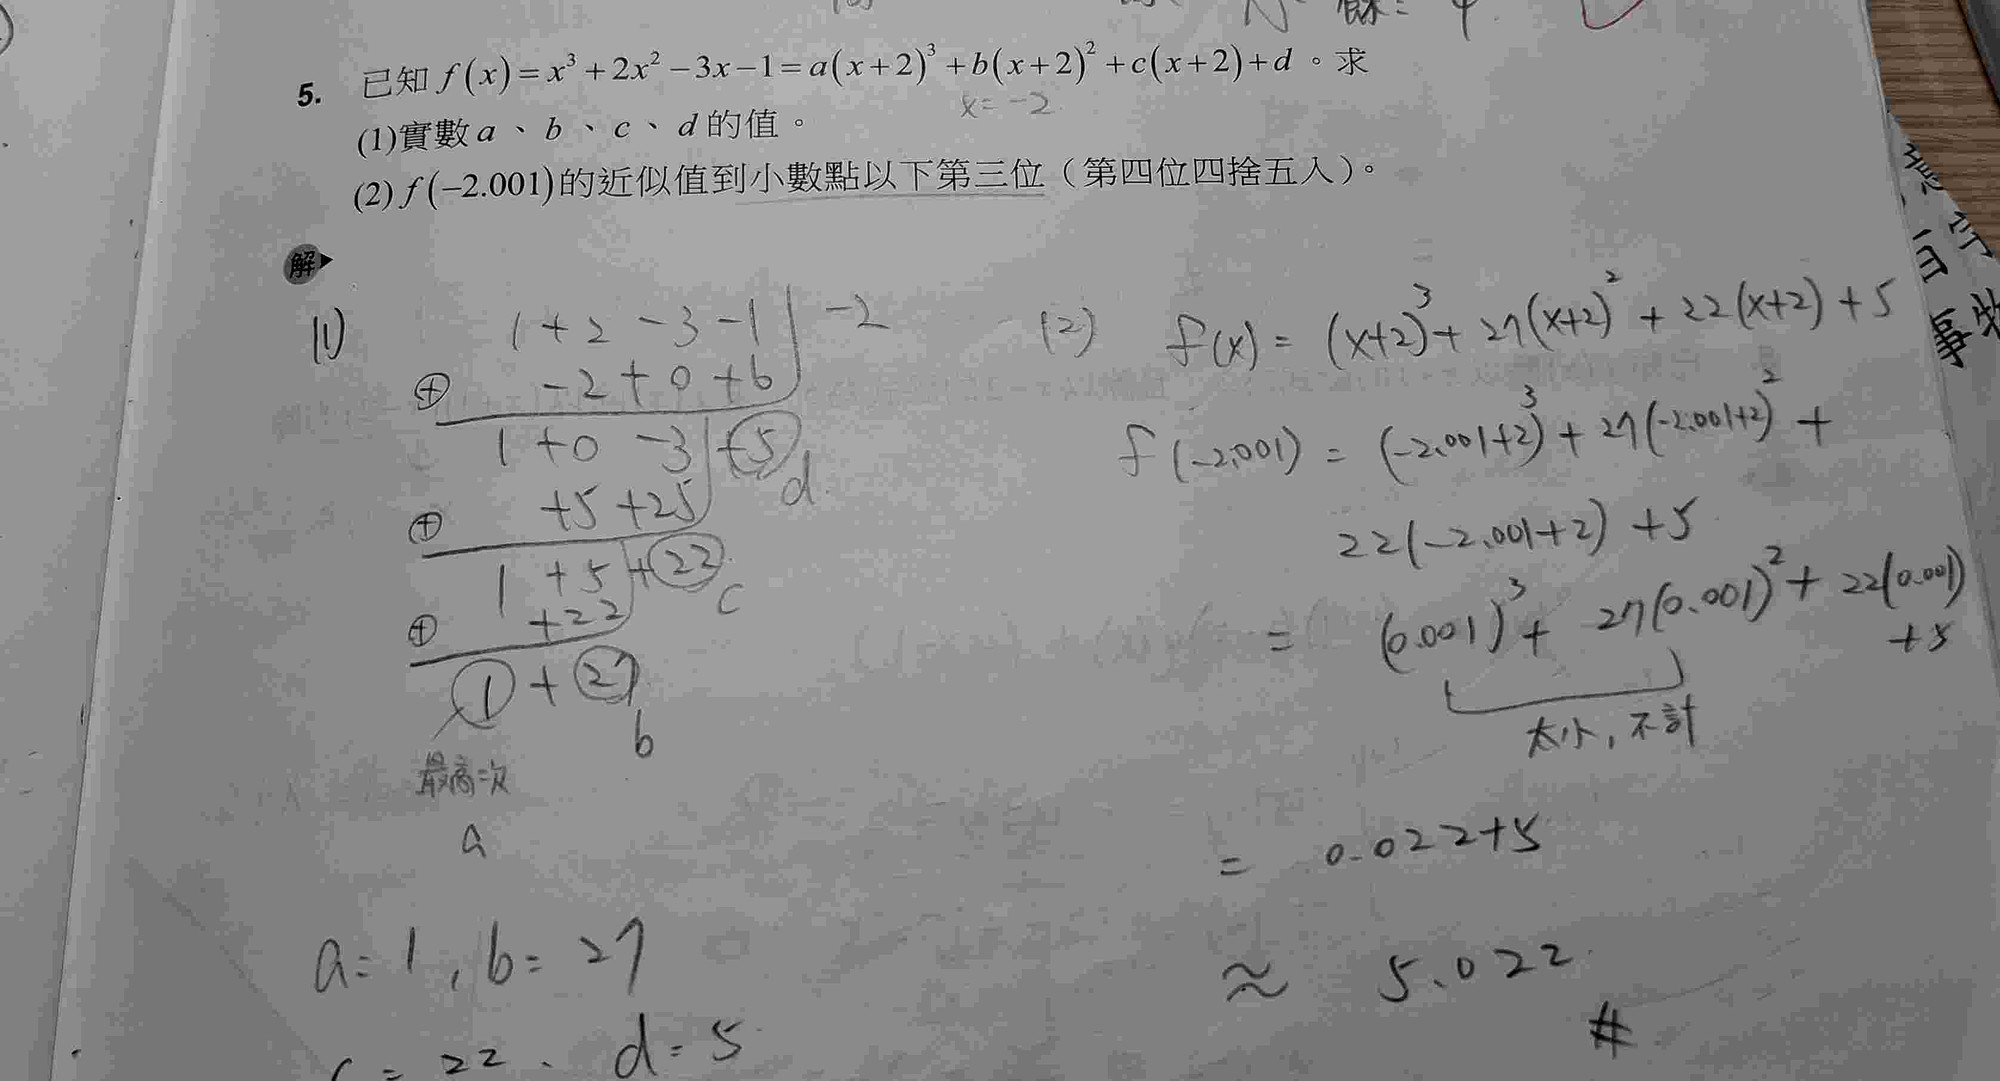 餘=4
5. 已知 f(x)=x³+2x²-3x-1=a(x+2)³+b(x+2)²+c(x+2)+d。求
x=-2
(1)實數a、b、c、d的值。
(2)f(-2.001)的近似值到小數點以下第三位(第四位四捨五入)。
解
(1)
1+2-3-1 | -2
⊕ -2+0+6
1+0-3 | +5
d
⊕ +5+25
1+5 | +22
c
⊕ +22
1+27
b
最高次
a
a=1, b=27
c=22、d=5
(2) f(x)=(x+2)³+27(x+2)²+22(x+2)+5
f(-2.001)=(-2.001+2)³+27(-2.001+2)²+
22(-2.001+2)+5
=(0.001)³+27(0.001)²+22(0.001)
+5
太小,不計
=0.022+5
≈5.022
#
意
百字
事物